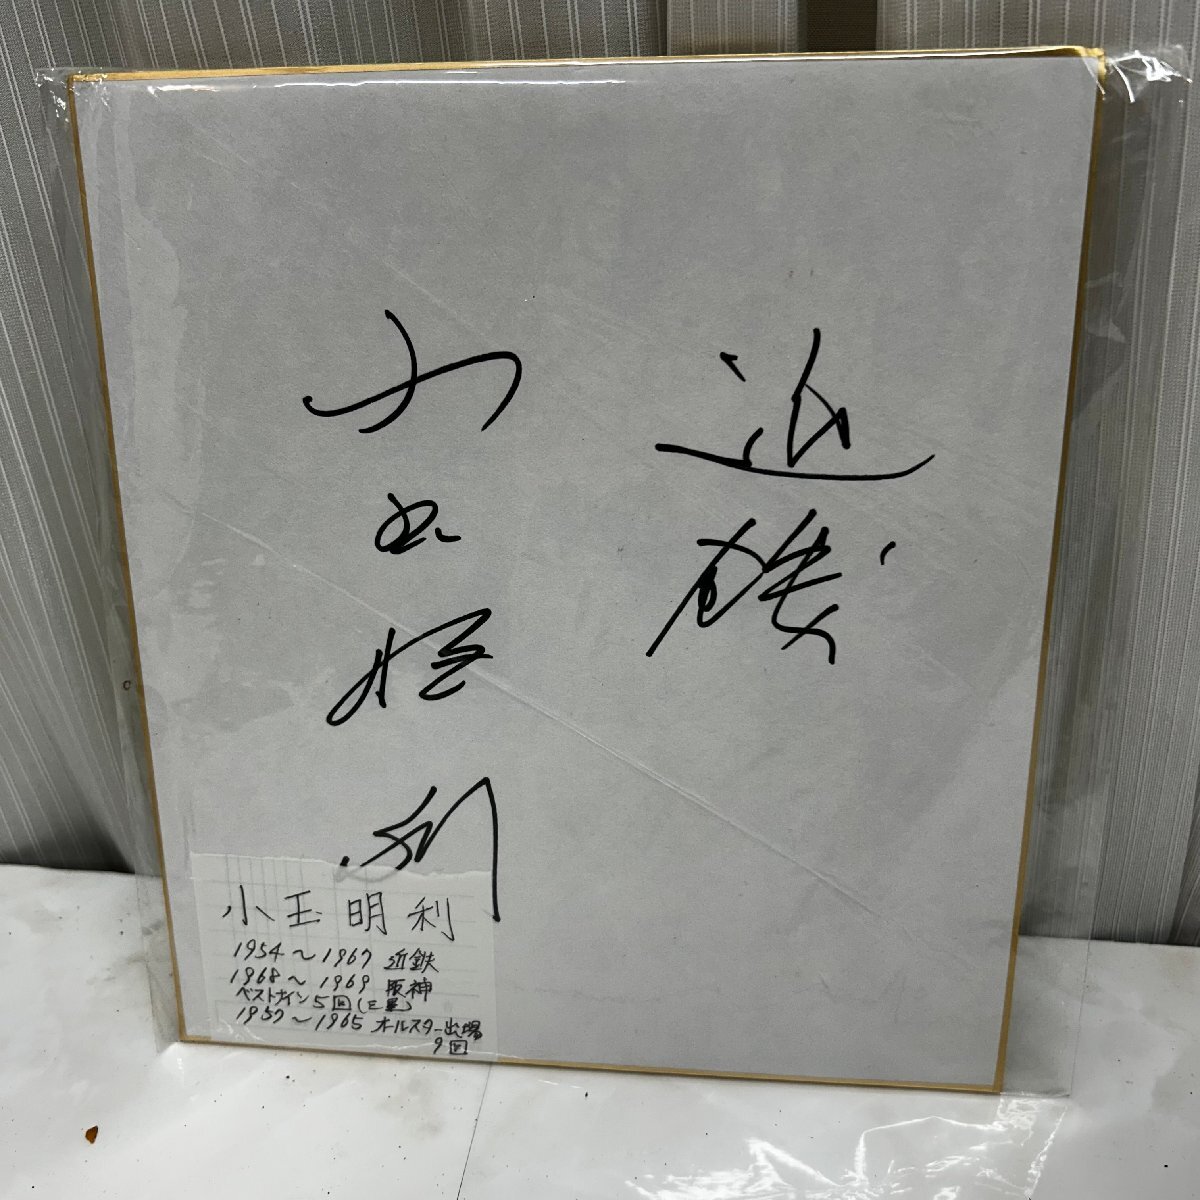 近鉄
小玉明利
小玉明利
1954～1967 近鉄
1968～1969 阪神
ベストナイン5回(三塁)
1957～1965 オールスター出場
9回